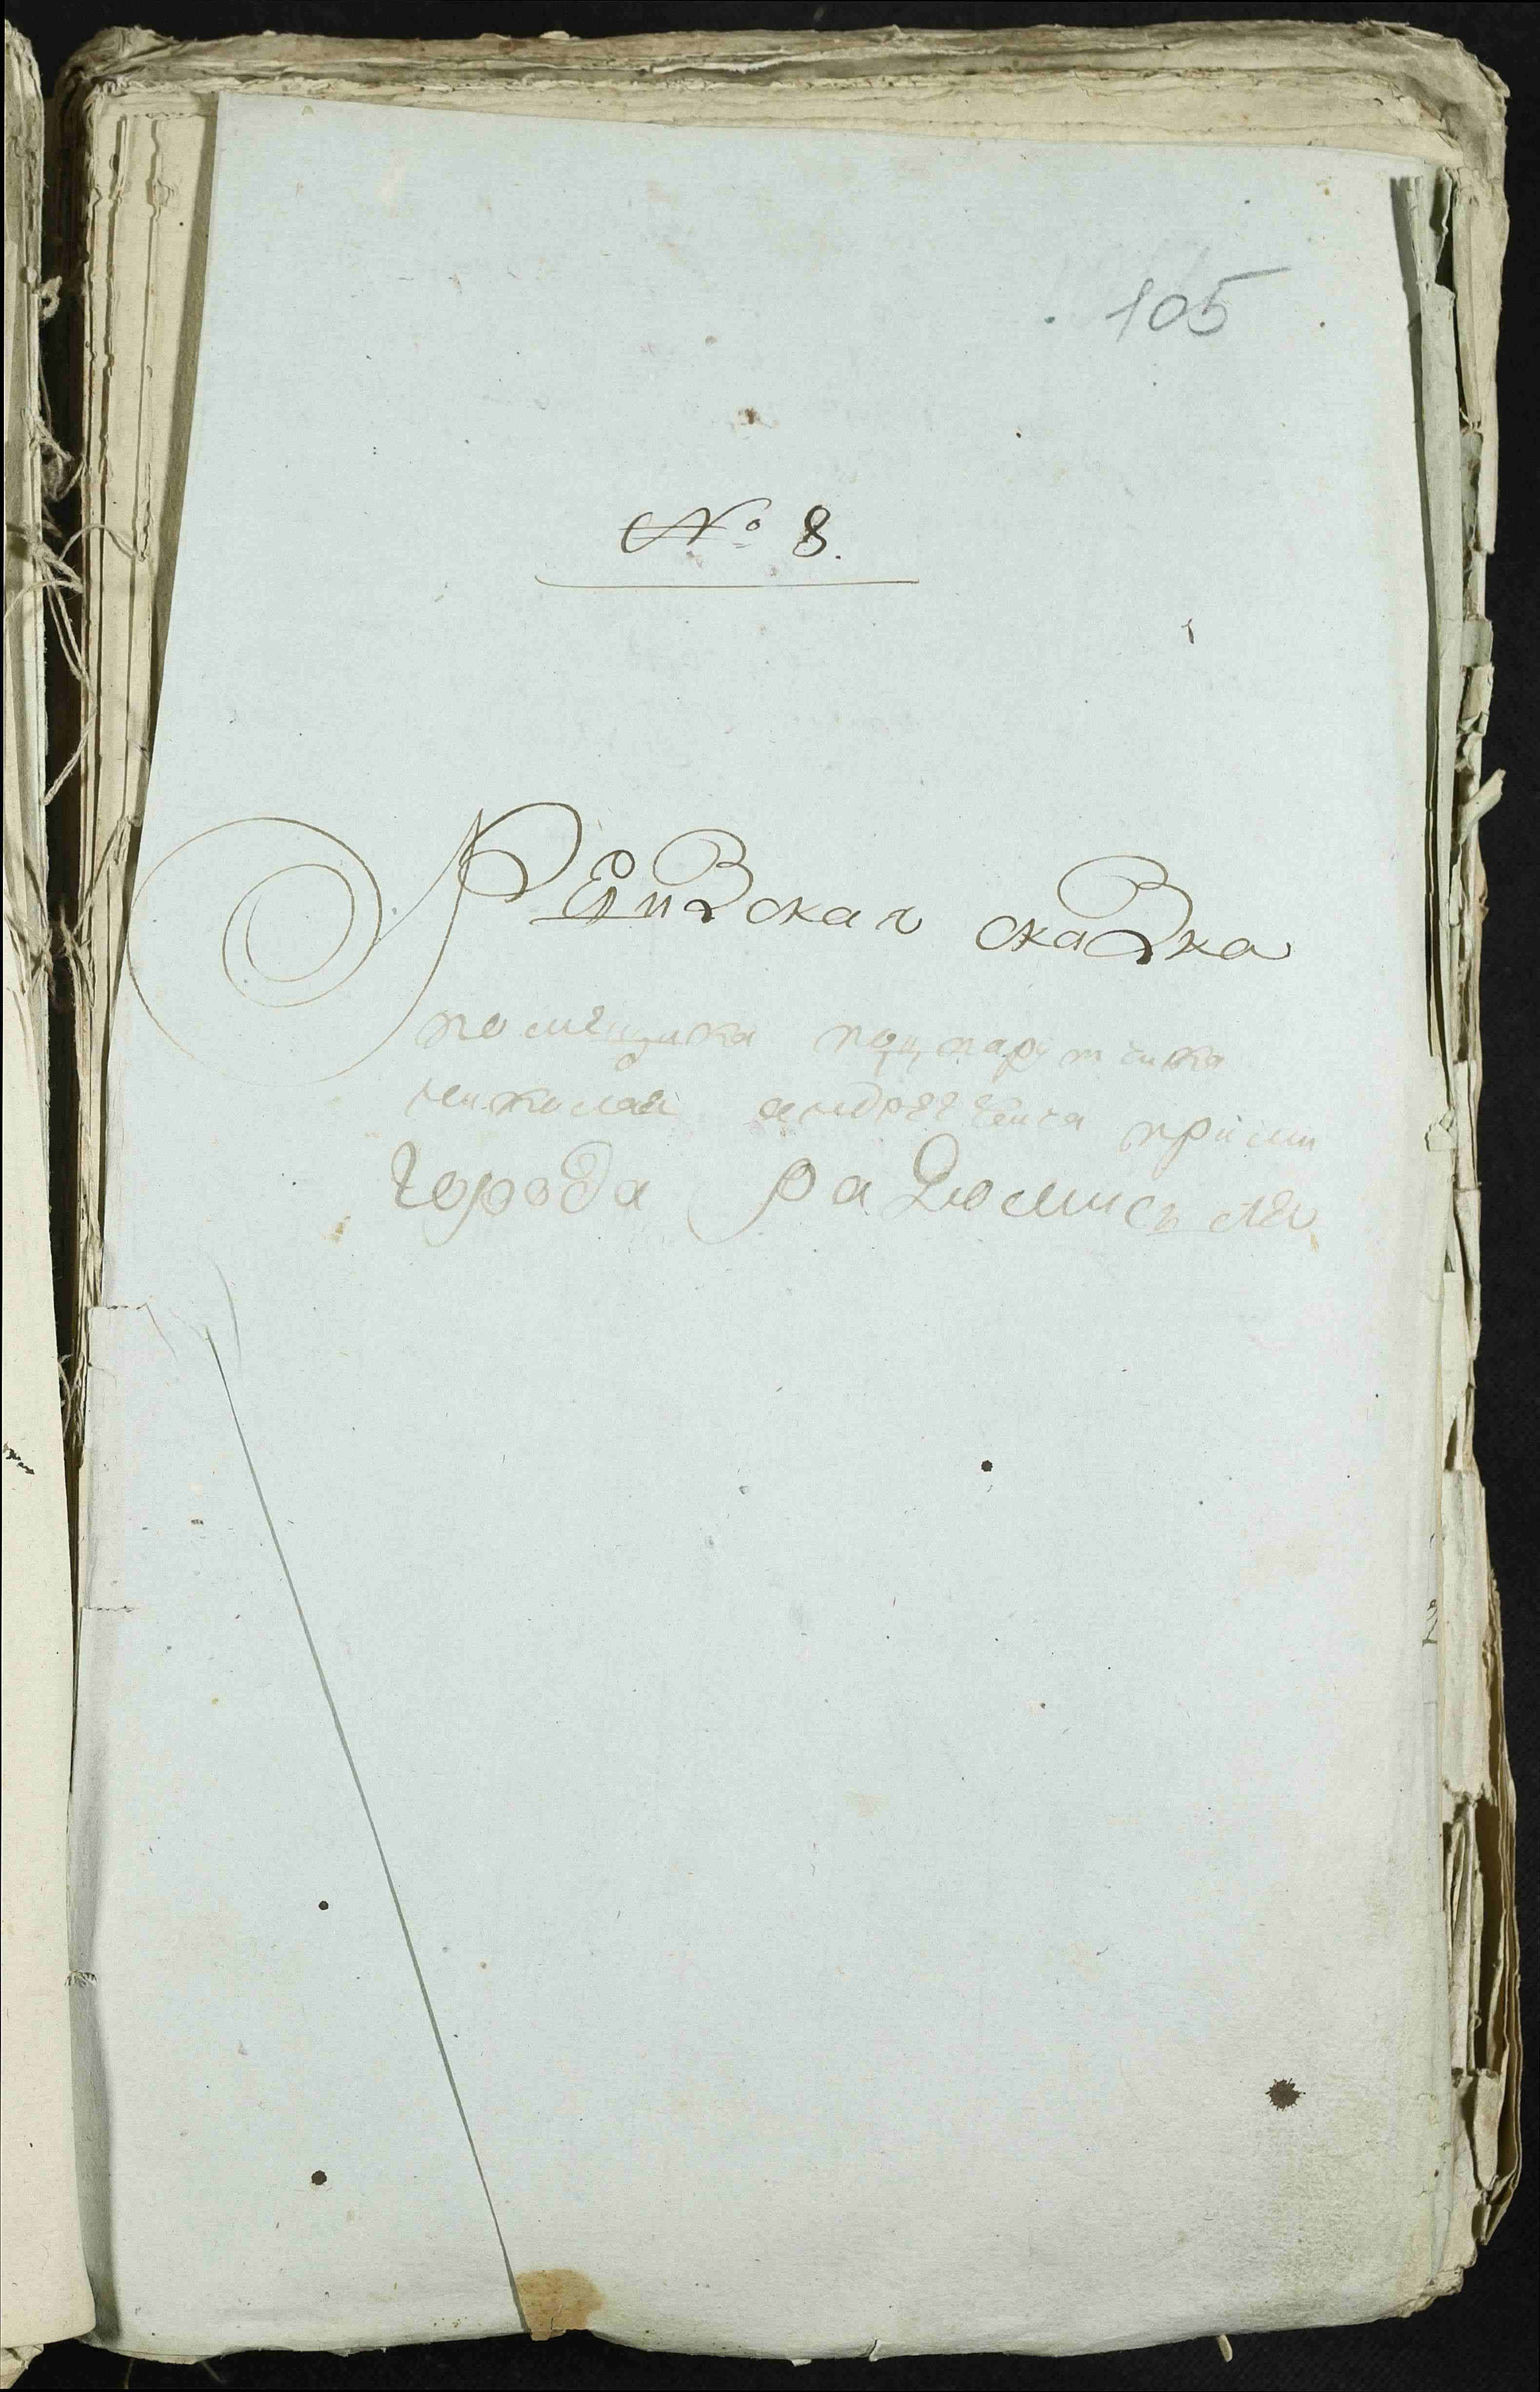 105
№ 8.
Ревизская сказка
помещика подпаручика
николая андреевича при
города радомисля